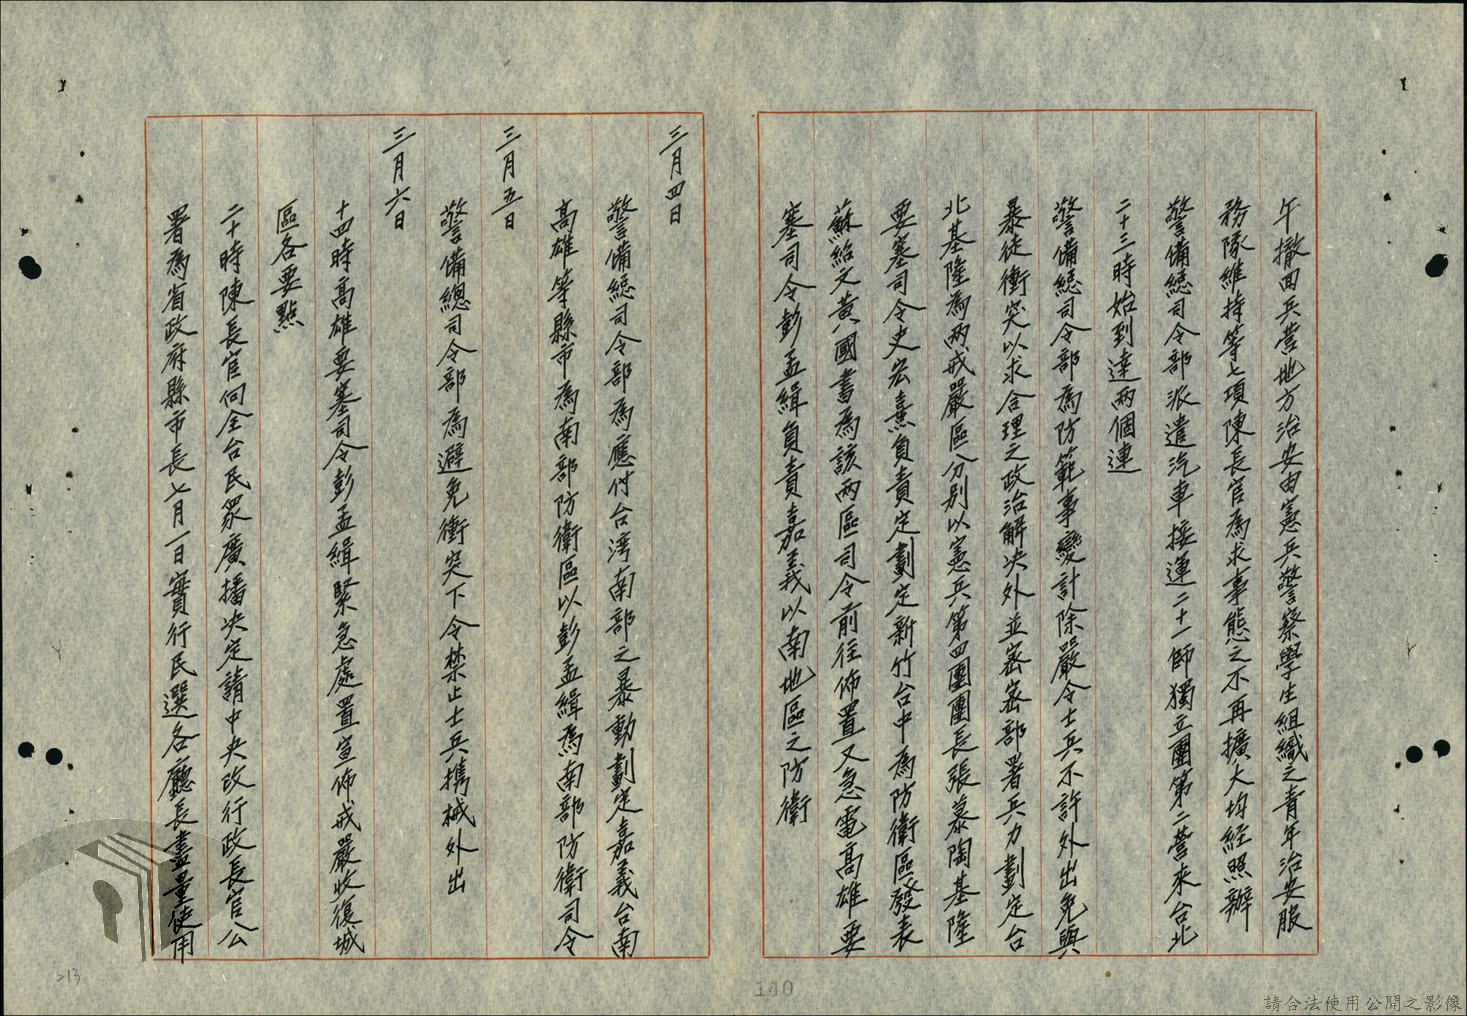 午撤回兵營地方治安由憲兵警察學生組織之青年治安服
務隊維持等七項陳長官為求事態之不再擴大均經照辦
警備總司令部派遣汽車接運二十一師獨立團第二營來台北
二十三時始到達兩個連
警備總司令部為防範事變計除嚴令士兵不許外出免與
暴徒衝突以求合理之政治解决外並嚴密部署兵力劃定台
北基隆為兩戒嚴區分别以憲兵第四團團長張慕陶基隆
要塞司令史宏熹負責定劃定新竹台中為防衛區發表
蘇紹文黃國書為該兩區司令前往佈置又急電高雄要
塞司令彭孟緝負責嘉義以南地區之防衛
三月四日
警備總司令部為應付台湾南部之暴動劃定嘉義台南
高雄等縣市為南部防衛區以彭孟緝為南部防衛司令
三月五日
警備總司令部為避免衝突下令禁止士兵携械外出
三月六日
十四時高雄要塞司令彭孟緝緊急處置宣佈戒嚴收復城
區各要點
二十時陳長官向全台民眾廣播决定請中央改行政長官公
署為省政府縣市長七月一日實行民選各廳長盡量使用
213
140
請合法使用公開之影像